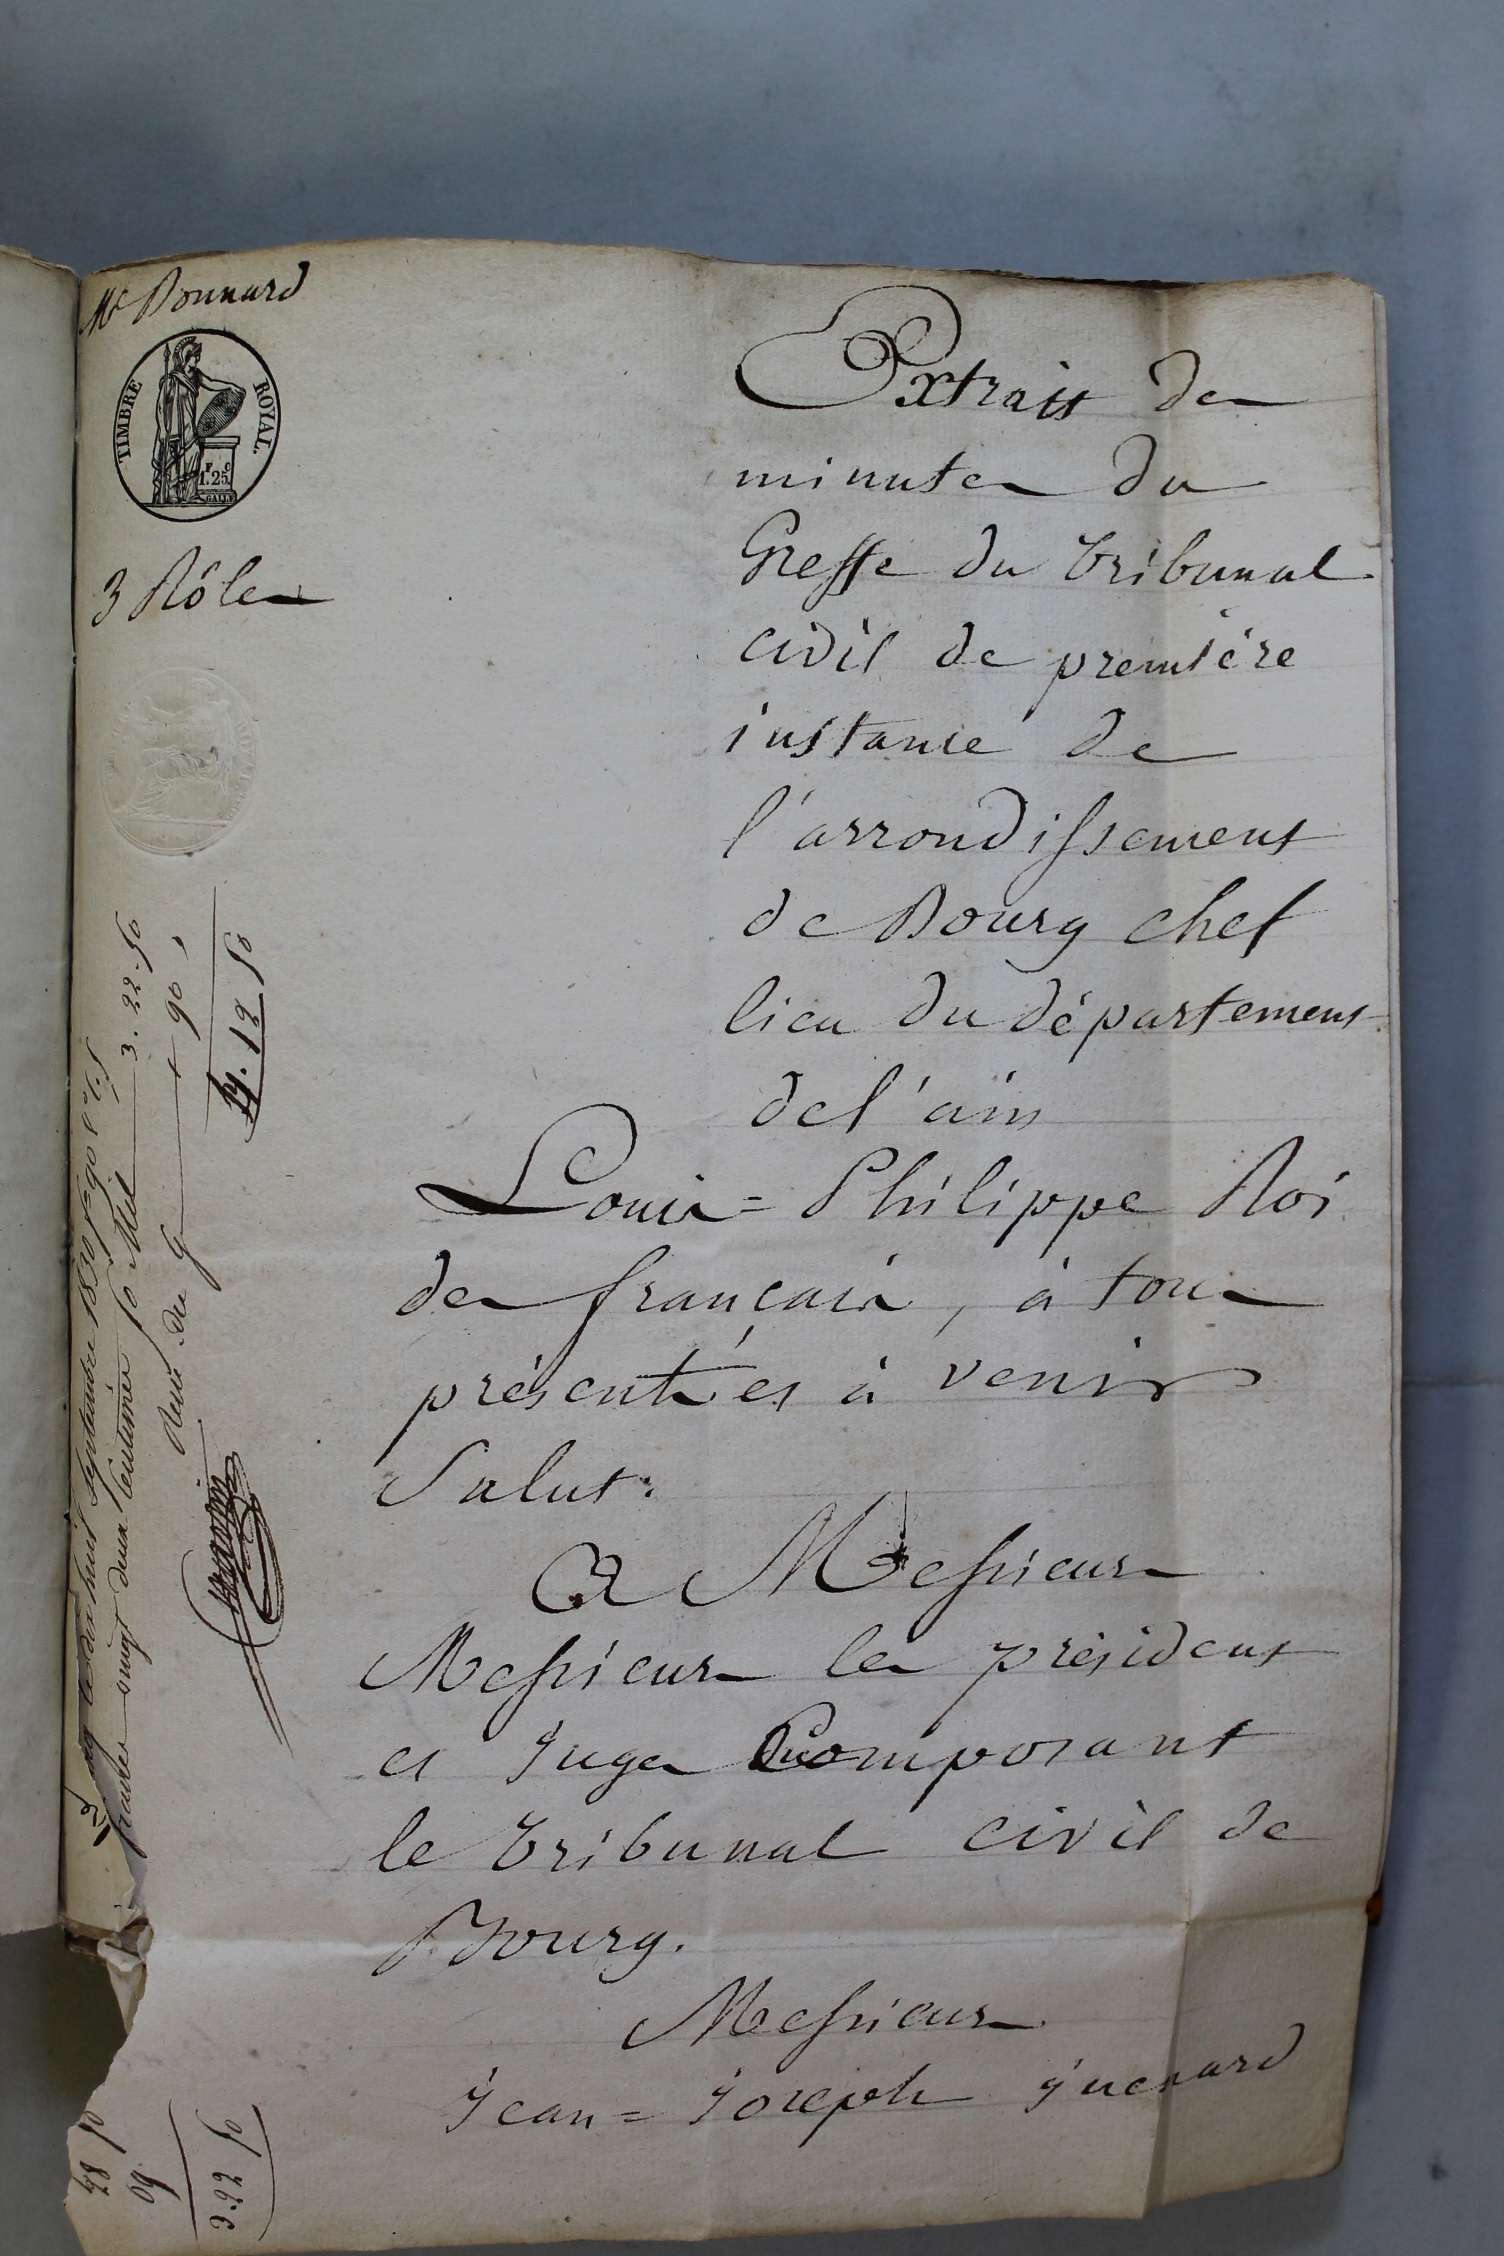 Me Bonnard
TIMBRE ROYAL.
F C
1.25
3 Rôles
Extrait des
minutes du
Greffe du tribunal
civil de première
instance de
l'arrondissement
de Bourg chef
lieu du département
de l'ain
Louis=Philippe Roi
des français, à tous
présents et à venir
Salut.
A Messieurs
Messieurs les président
et Juges Composant
le tribunal civil de
Bourg.
Messieurs
Jean=Joseph guenard
le dix huit septembre 1830 fo 90
francs vingt deux centimes 50 Mil 3. 22. 50
Remise du g 90
4. 12 50
28 50
60
3.22 50